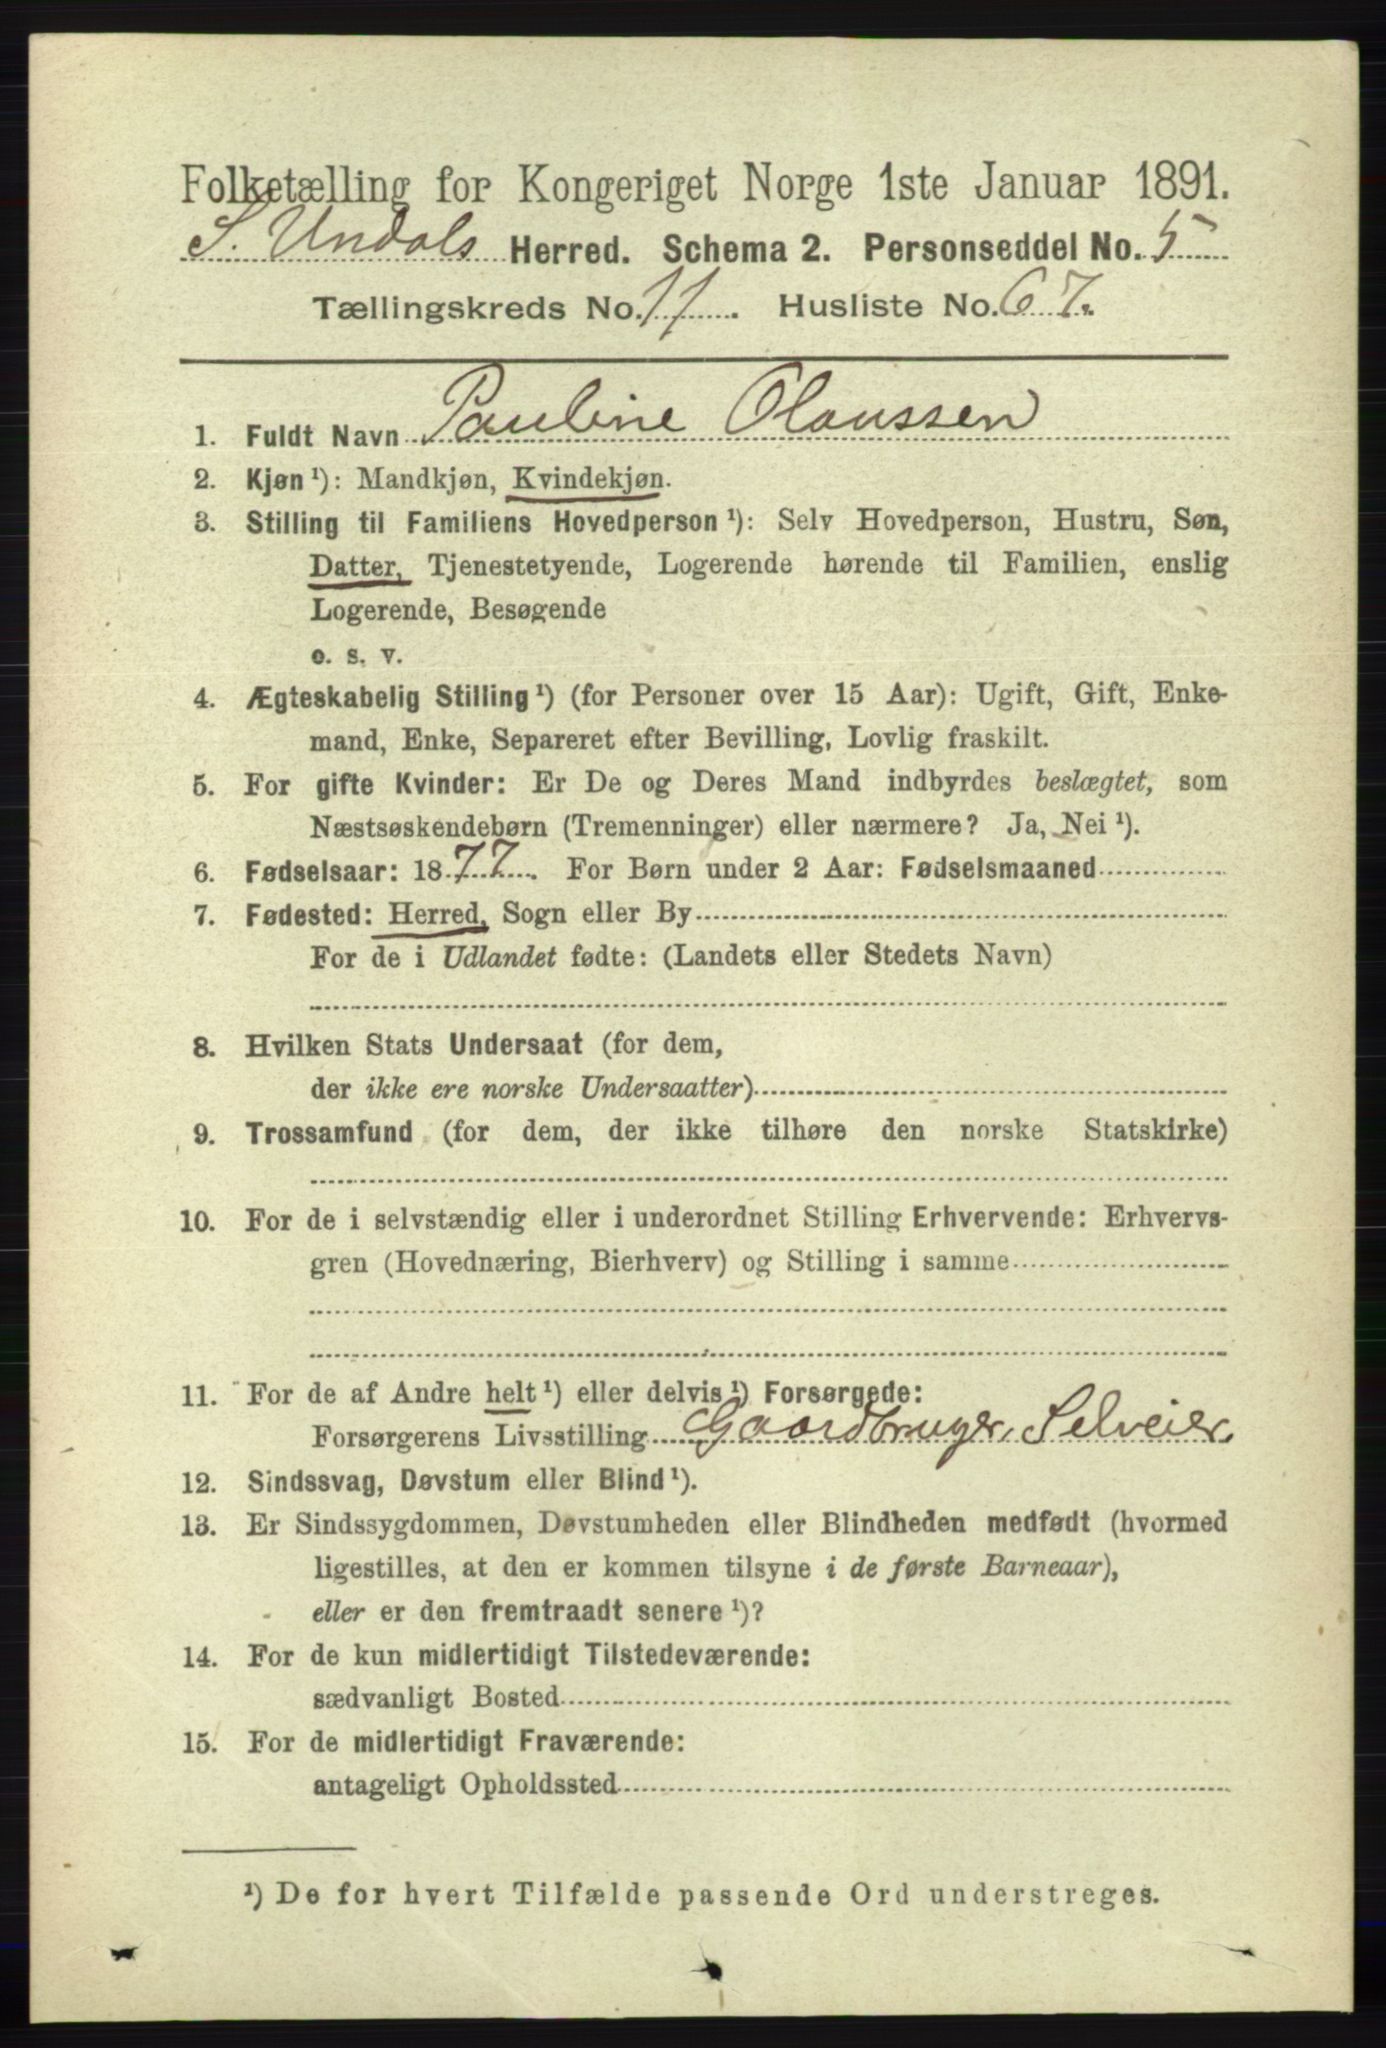 Folketælling for Kongeriget Norge 1ste Januar 1891.
S. Undals Herred. Schema 2. Personseddel No. 5
Tællingskreds No. 11. Husliste No. 67.
1. Fuldt Navn Pauline Olaussen
2. Kjøn¹): Mandkjøn, Kvindekjøn.
3. Stilling til Familiens Hovedperson¹): Selv Hovedperson, Hustru, Søn,
Datter, Tjenestetyende, Logerende hørende til Familien, enslig
Logerende, Besøgende
o. s. v.
4. Ægteskabelig Stilling¹) (for Personer over 15 Aar): Ugift, Gift, Enke-
mand, Enke, Separeret efter Bevilling, Lovlig fraskilt.
5. For gifte Kvinder: Er De og Deres Mand indbyrdes beslægtet, som
Næstsøskendebørn (Tremenninger) eller nærmere? Ja, Nei¹).
6. Fødselsaar: 1877. For Børn under 2 Aar: Fødselsmaaned
7. Fødested: Herred, Sogn eller By
For de i Udlandet fødte: (Landets eller Stedets Navn)
8. Hvilken Stats Undersaat (for dem,
der ikke ere norske Undersaatter)
9. Trossamfund (for dem, der ikke tilhøre den norske Statskirke)
10. For de i selvstændig eller i underordnet Stilling Erhvervende: Erhvervs-
gren (Hovednæring, Bierhverv) og Stilling i samme
11. For de af Andre helt¹) eller delvis¹) Forsørgede:
Forsørgerens Livsstilling Gaardbruger, Selveier,
12. Sindssvag, Døvstum eller Blind¹).
13. Er Sindssygdommen, Døvstumheden eller Blindheden medfødt (hvormed
ligestilles, at den er kommen tilsyne i de første Barneaar),
eller er den fremtraadt senere¹)?
14. For de kun midlertidigt Tilstedeværende:
sædvanligt Bosted
15. For de midlertidigt Fraværende:
antageligt Opholdssted
¹) De for hvert Tilfælde passende Ord understreges.